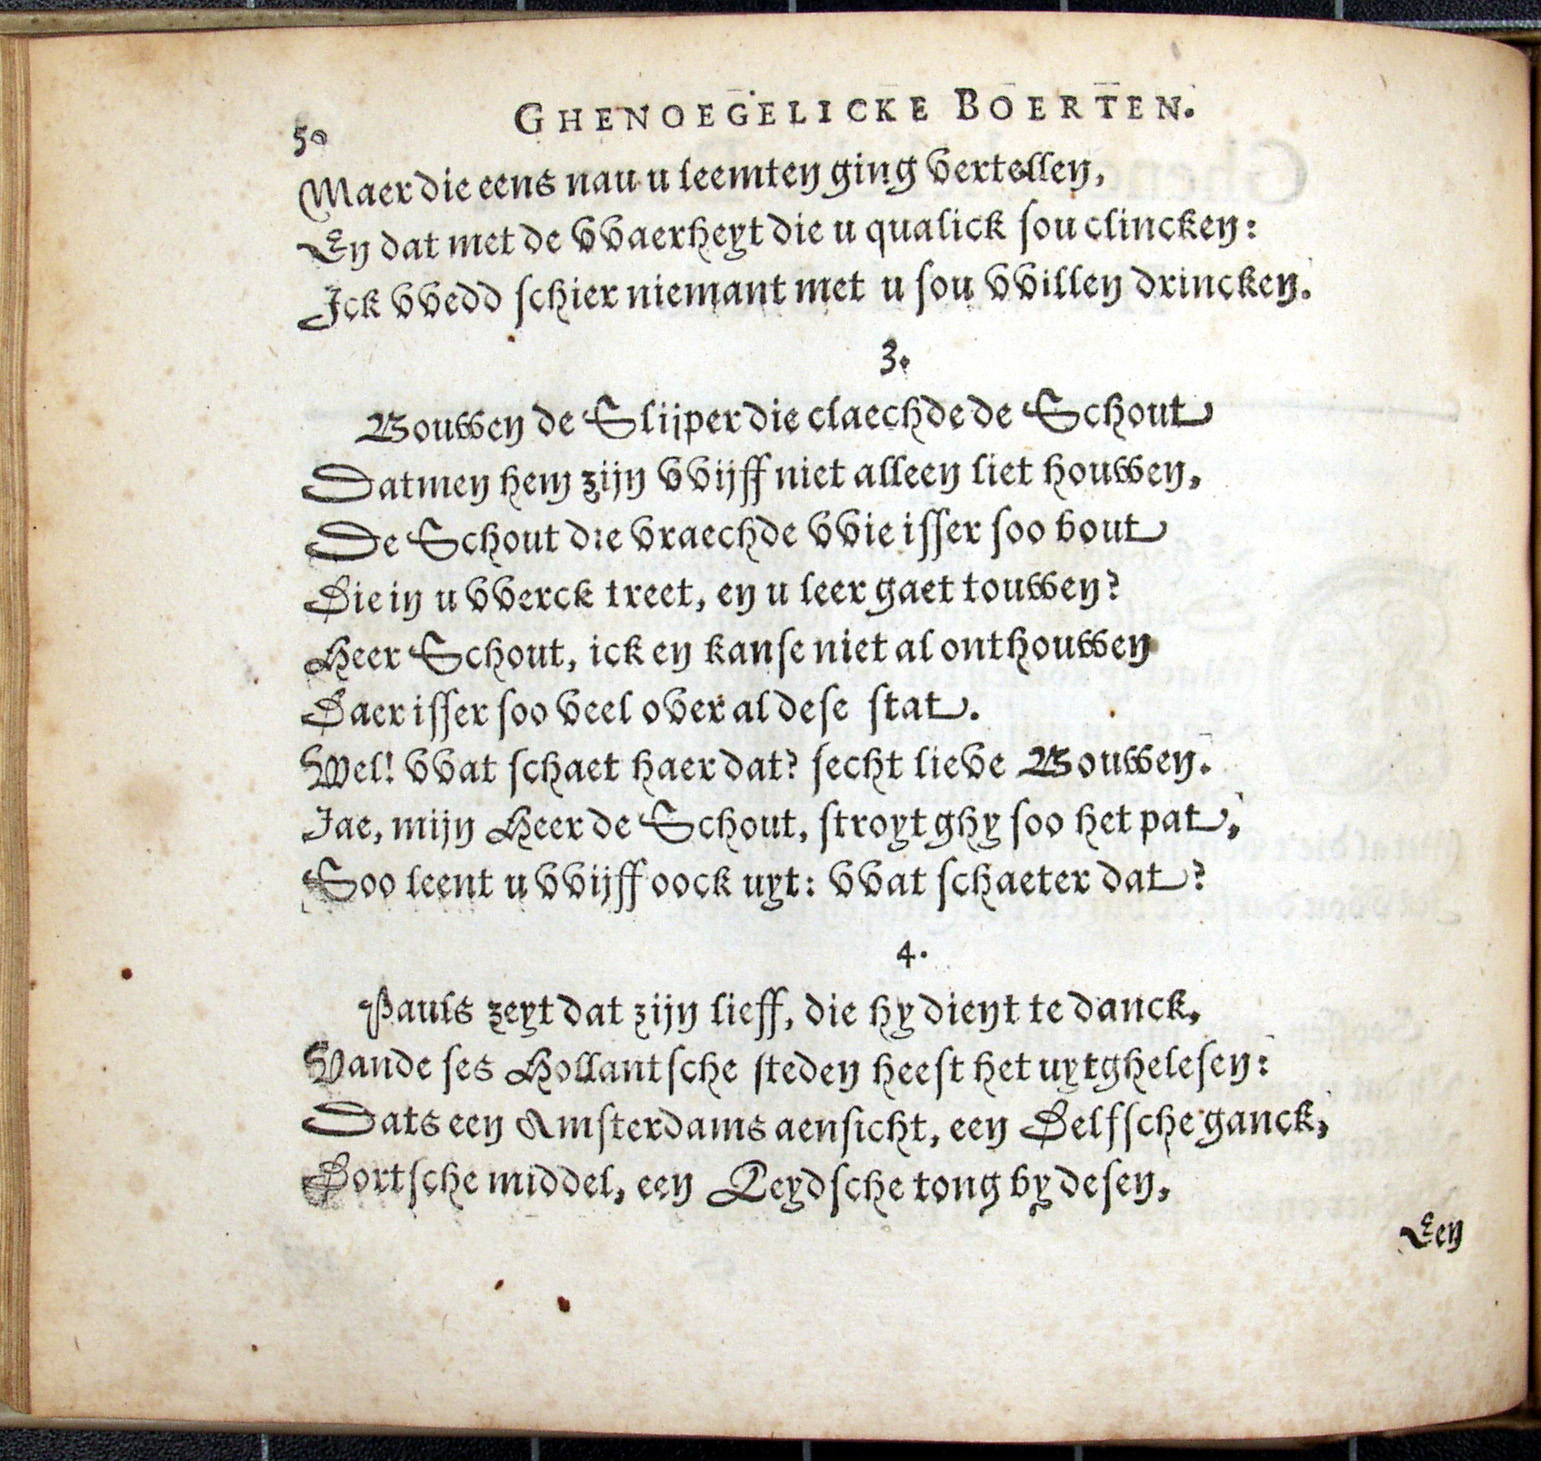 50
GHENOEGELICKE BOERTEN.
Maer die eens nau u leemten ging vertellen,
En dat met de vvaerheyt die u qualick sou clincken:
Ick vvedd schier niemant met u sou vvillen drincken.
3.
Bouwen de Slijper die claechde de Schout
Datmen hem zijn vvijff niet alleen liet houwen,
De Schout die vraechde vvie isser soo bout
Die in u vverck treet, en u leer gaet touwen?
Heer Schout, ick en kanse niet al onthouwen
Daer isser soo veel over al dese stat.
Wel! vvat schaet haer dat? secht lieve Bouwen.
Iae, mijn Heer de Schout, stroyt ghy soo het pat,
Soo leent u vvijff oock uyt: vvat schaeter dat?
4.
Pauls zeyt dat zijn lieff, die hy dient te danck,
Vande ses Hollantsche steden heest het uytghelesen:
Dats een Amsterdams aensicht, een Delfsche ganck,
Dortsche middel, een Leydsche tong by desen,
Een